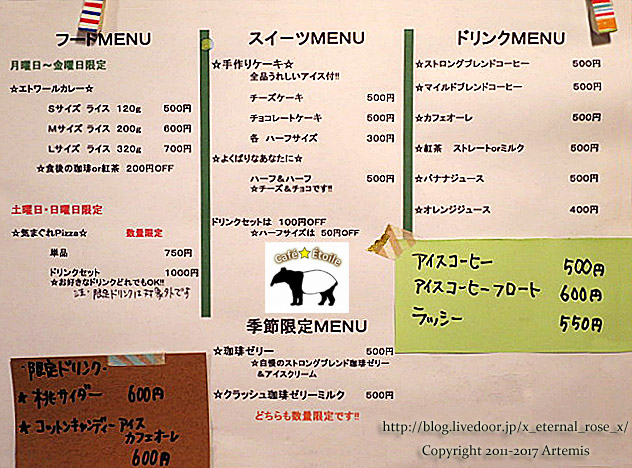 フードMENU
月曜日～金曜日限定
☆エトワールカレー☆
Sサイズ ライス 120g 500円
Mサイズ ライス 200g 600円
Lサイズ ライス 320g 700円
☆食後の珈琲or紅茶 200円OFF
土曜日・日曜日限定
☆気まぐれPizza☆ 数量限定
単品 750円
ドリンクセット 1000円
☆お好きなドリンクどれでもOK!!
注:限定ドリンクは対象外です
スイーツMENU
☆手作りケーキ☆
全品うれしいアイス付!!
チーズケーキ 500円
チョコレートケーキ 500円
各 ハーフサイズ 300円
☆よくばりなあなたに☆
ハーフ&ハーフ 500円
☆チーズ&チョコです!!
ドリンクセットは 100円OFF
☆ハーフサイズは 50円OFF
Café☆Étoile
季節限定MENU
☆珈琲ゼリー 500円
☆自慢のストロングブレンド珈琲ゼリー
&アイスクリーム
☆クラッシュ珈琲ゼリーミルク 500円
どちらも数量限定です!!
ドリンクMENU
☆ストロングブレンドコーヒー 500円
☆マイルドブレンドコーヒー 500円
☆カフェオーレ 500円
☆紅茶 ストレートorミルク 500円
☆バナナジュース 500円
☆オレンジジュース 400円
アイスコーヒー 500円
アイスコーヒーフロート 600円
ラッシー 550円
・限定ドリンク・
★ 桃サイダー 600円
★ コットンキャンディーアイス
カフェオーレ
600円
http://blog.livedoor.jp/x_eternal_rose_x/
Copyright 2011-2017 Artemis